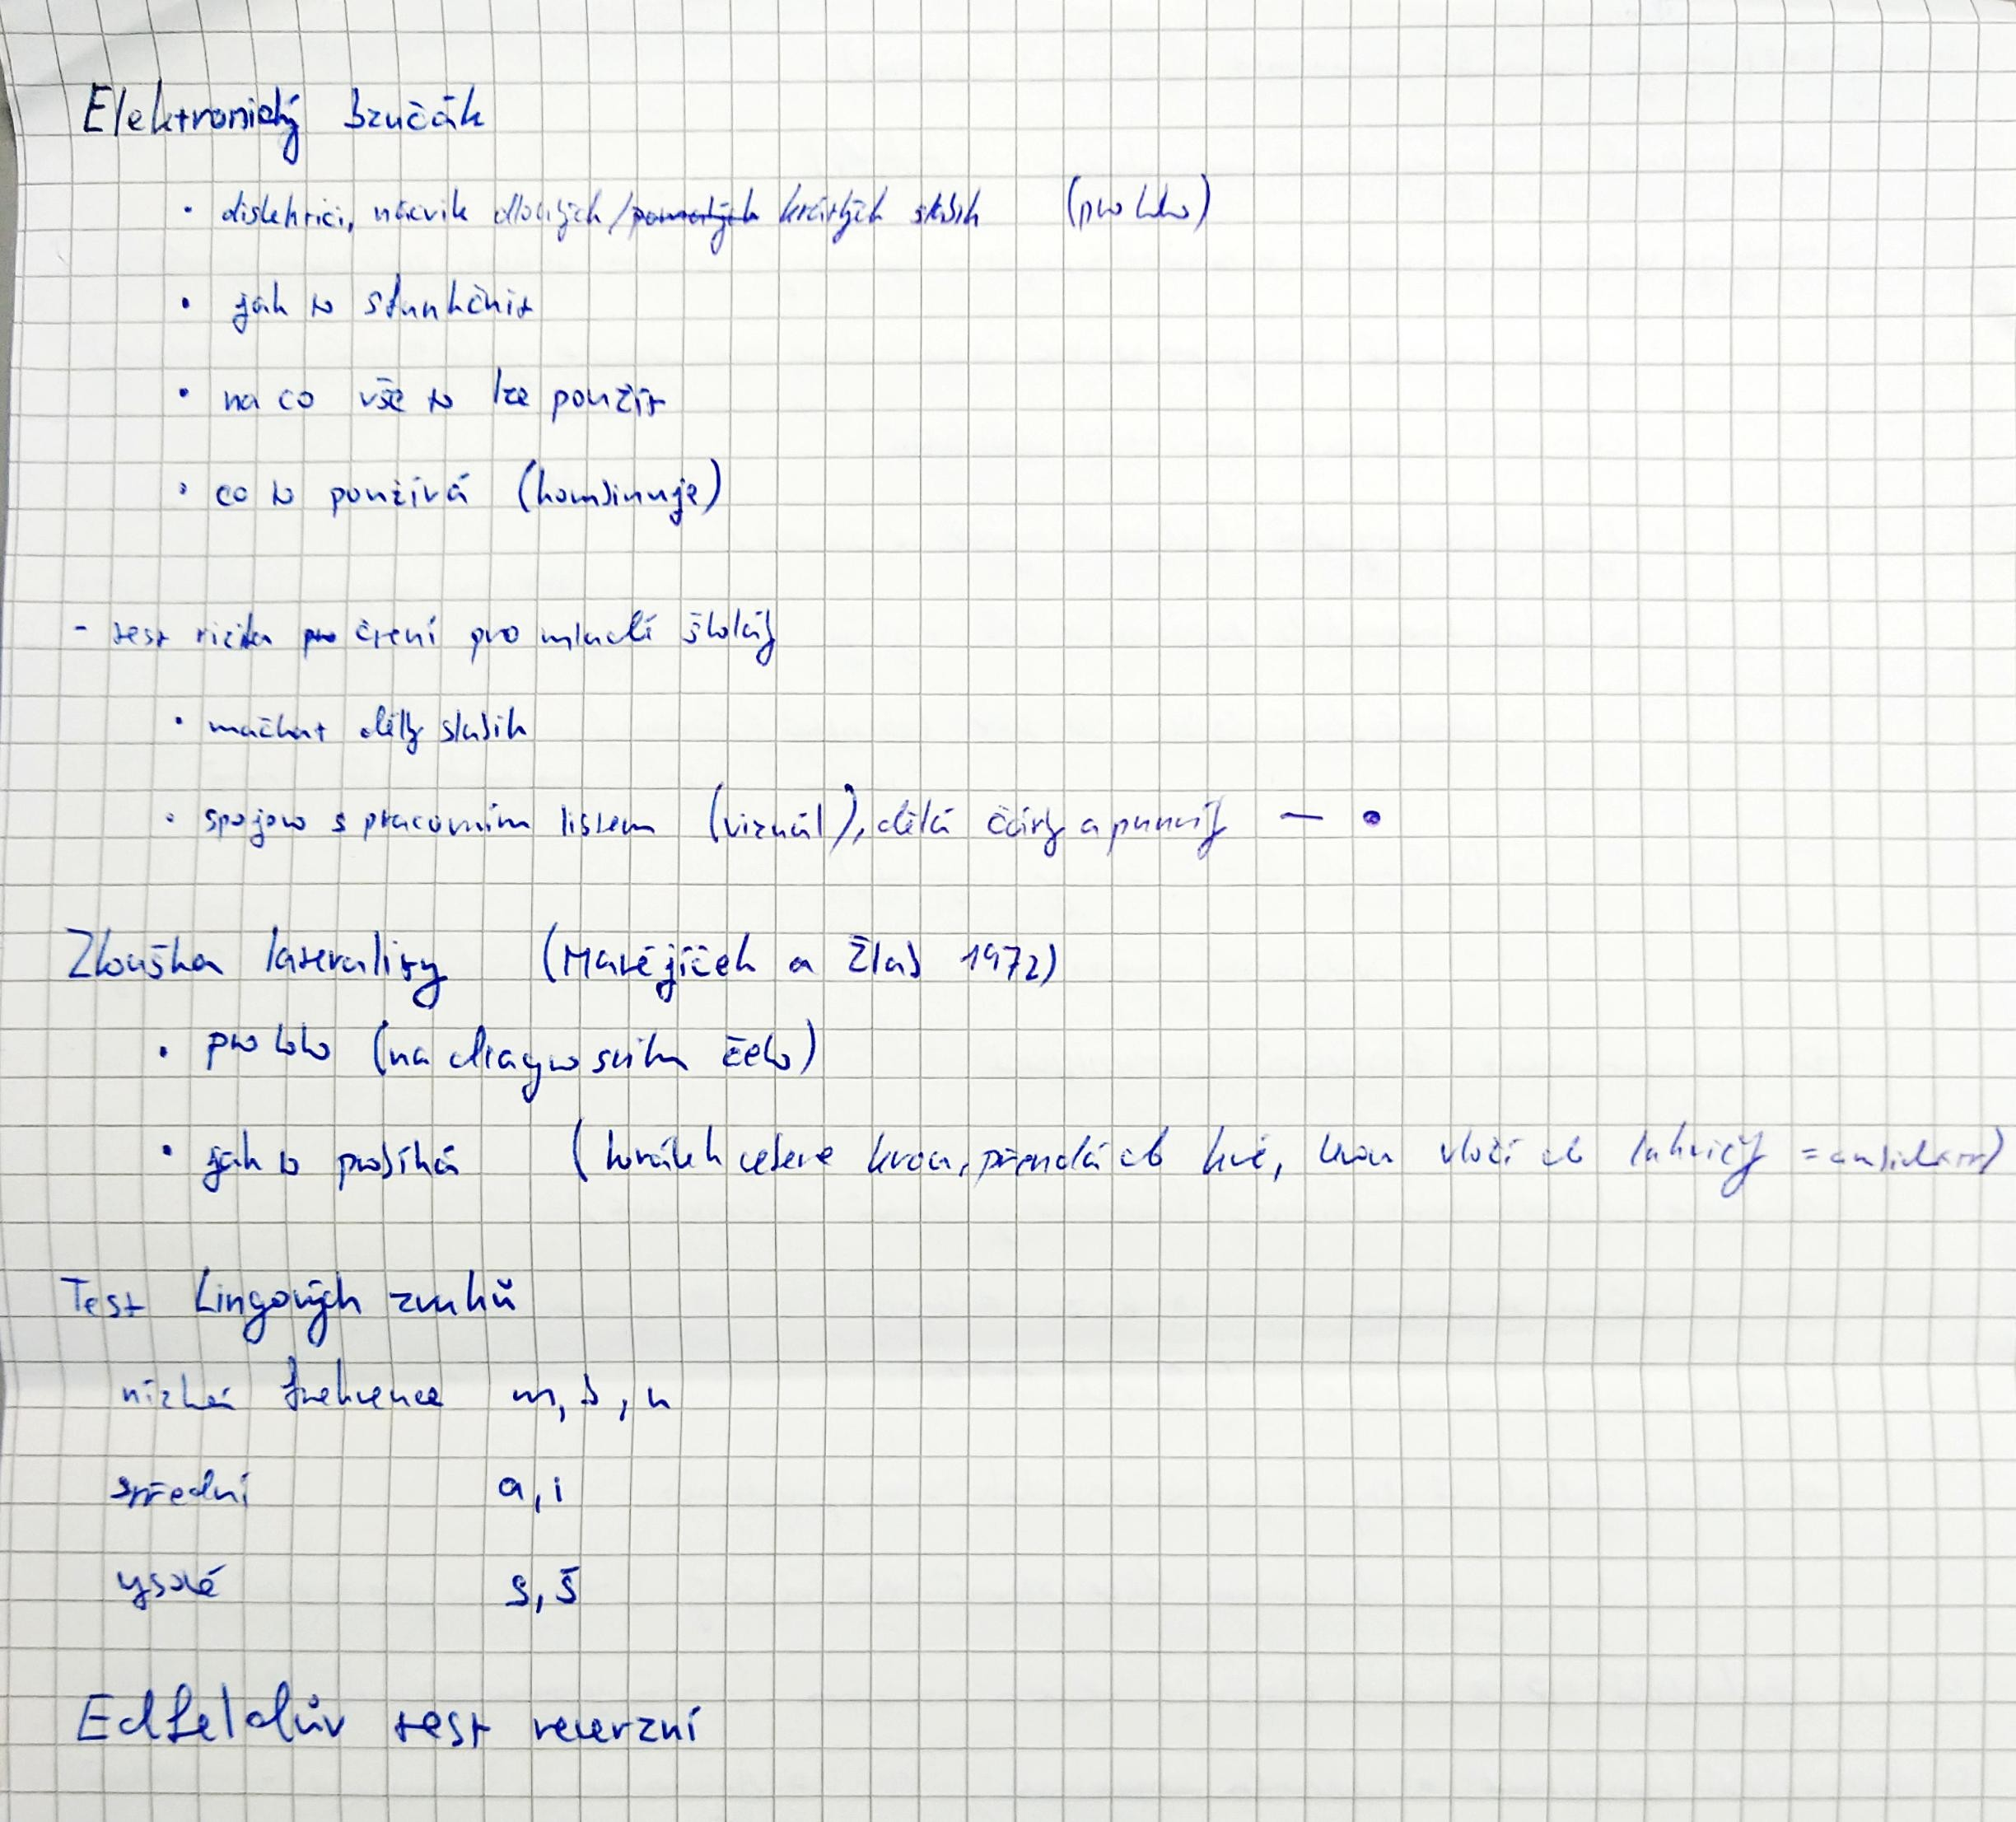 Elektronický bzučák
• dislektici, nácvik dlouhých/pomalých krátkých slabik (pro koho)
• jak to sfunkčnit
• na co vše to lze použít
• co to používá (kombinuje)
- test rizika čtení pro mladší školáky
• mačkat délky slabik
• spojeno s pracovním listem (vizuál), dělá čárky a puntíky — •
Zkouška laterality (Matějíček a Žlab 1972)
• pro koho (na diagnostiku čeho)
• jak to probíhá (korálek vezme, předá do, vloží do lahvičky =)
Test Lingových zvuků
nízká frekvence m, b, u
střední a, i
vysoké s, š
Edfeldův test reverzní